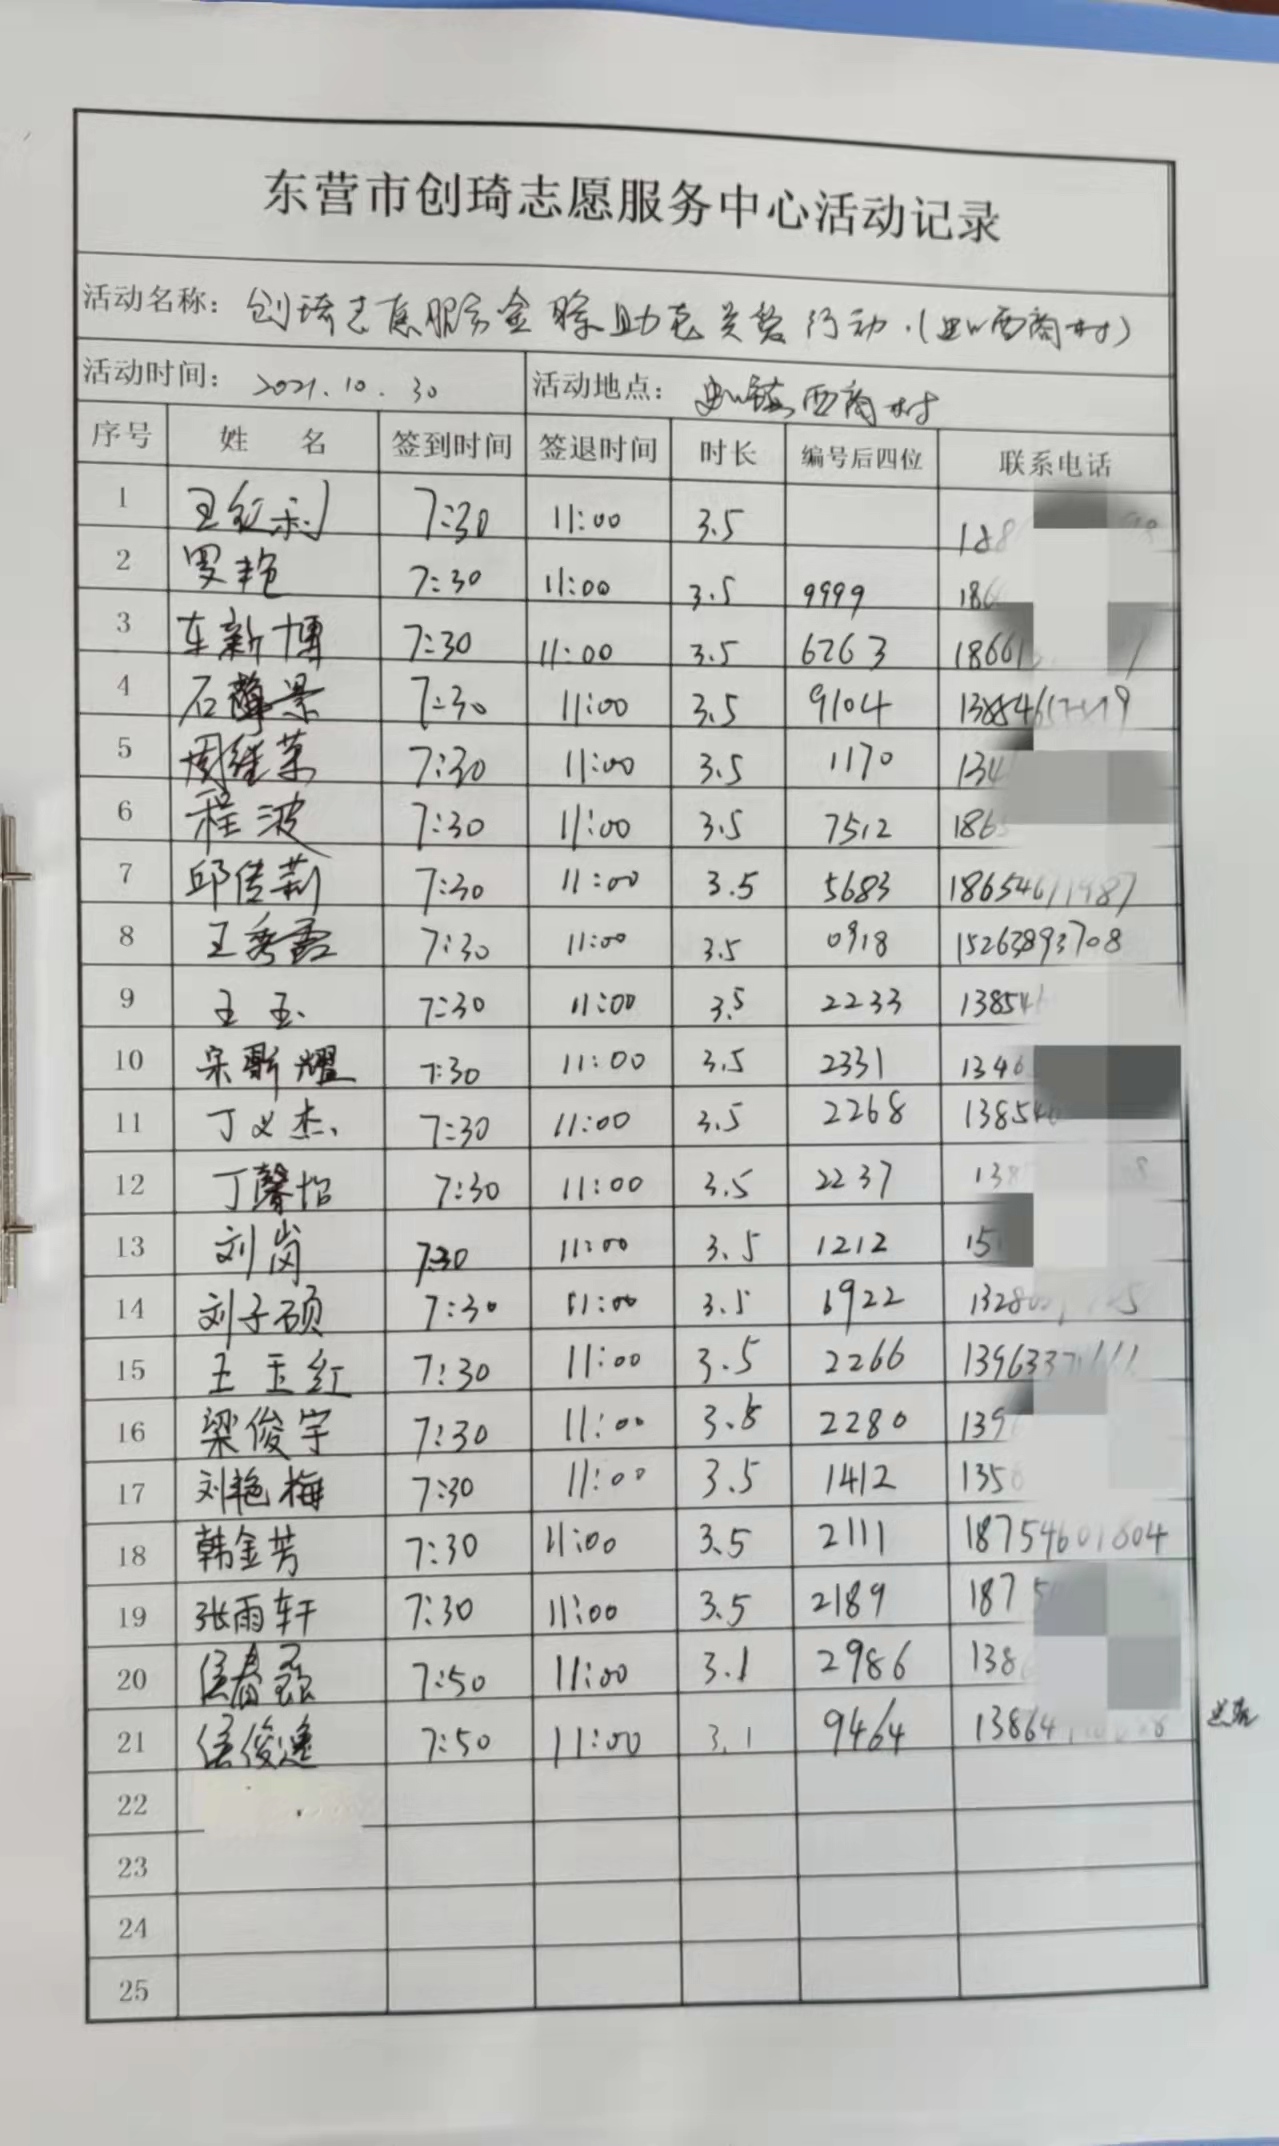 东营市创琦志愿服务中心活动记录
活动名称：创琦志愿服务金晖助老关爱行动.(史口西商村)
活动时间：2021.10.30 活动地点：史口镇西商村
序号 姓 名 签到时间 签退时间 时长 编号后四位 联系电话
1 王红利 7:30 11:00 3.5 188
2 罗艳 7:30 11:00 3.5 9999 186
3 车新博 7:30 11:00 3.5 6263 18661
4 石 景 7:30 11:00 3.5 9104 138546
5 周维荣 7:30 11:00 3.5 1170 134
6 程波 7:30 11:00 3.5 7512 186
7 邱佳莉 7:30 11:00 3.5 5683 186546 87
8 王秀霞 7:30 11:00 3.5 0918 15263893708
9 王玉 7:30 11:00 3.5 2233 13854
10 宋新耀 7:30 11:00 3.5 2331 1346
11 丁义杰 7:30 11:00 3.5 2268 13854
12 丁馨怡 7:30 11:00 3.5 2237 138
13 刘岗 7:30 11:00 3.5 1212 15
14 刘子硕 7:30 11:00 3.5 6922 1328
15 王玉红 7:30 11:00 3.5 2266 139633
16 梁俊宇 7:30 11:00 3.5 2280 139
17 刘艳梅 7:30 11:00 3.5 1412 135
18 韩金芳 7:30 11:00 3.5 2111 18754601804
19 张雨轩 7:30 11:00 3.5 2189 187
20 侯春磊 7:50 11:00 3.1 2986 138
21 侯俊逸 7:50 11:00 3.1 9464 13864
22
23
24
25